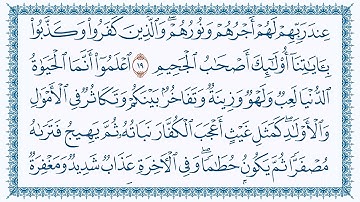 عِندَ رَبِّهِمْ لَهُمْ أَجْرُهُمْ وَنُورُهُمْ ۖ وَٱلَّذِينَ كَفَرُوا۟ وَكَذَّبُوا۟
بِـَٔايَـٰتِنَآ أُو۟لَـٰٓئِكَ أَصْحَـٰبُ ٱلْجَحِيمِ ١٩ ٱعْلَمُوٓا۟ أَنَّمَا ٱلْحَيَوٰةُ
ٱلدُّنْيَا لَعِبٌ وَلَهْوٌ وَزِينَةٌ وَتَفَاخُرٌۢ بَيْنَكُمْ وَتَكَاثُرٌ فِى ٱلْأَمْوَٰلِ
وَٱلْأَوْلَـٰدِ ۖ كَمَثَلِ غَيْثٍ أَعْجَبَ ٱلْكُفَّارَ نَبَاتُهُۥ ثُمَّ يَهِيجُ فَتَرَىٰهُ
مُصْفَرًّا ثُمَّ يَكُونُ حُطَـٰمًا ۖ وَفِى ٱلْـَٔاخِرَةِ عَذَابٌ شَدِيدٌ وَمَغْفِرَةٌ